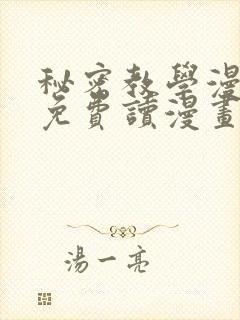 秘密教學漫
免費讀漫畫
湯一亮